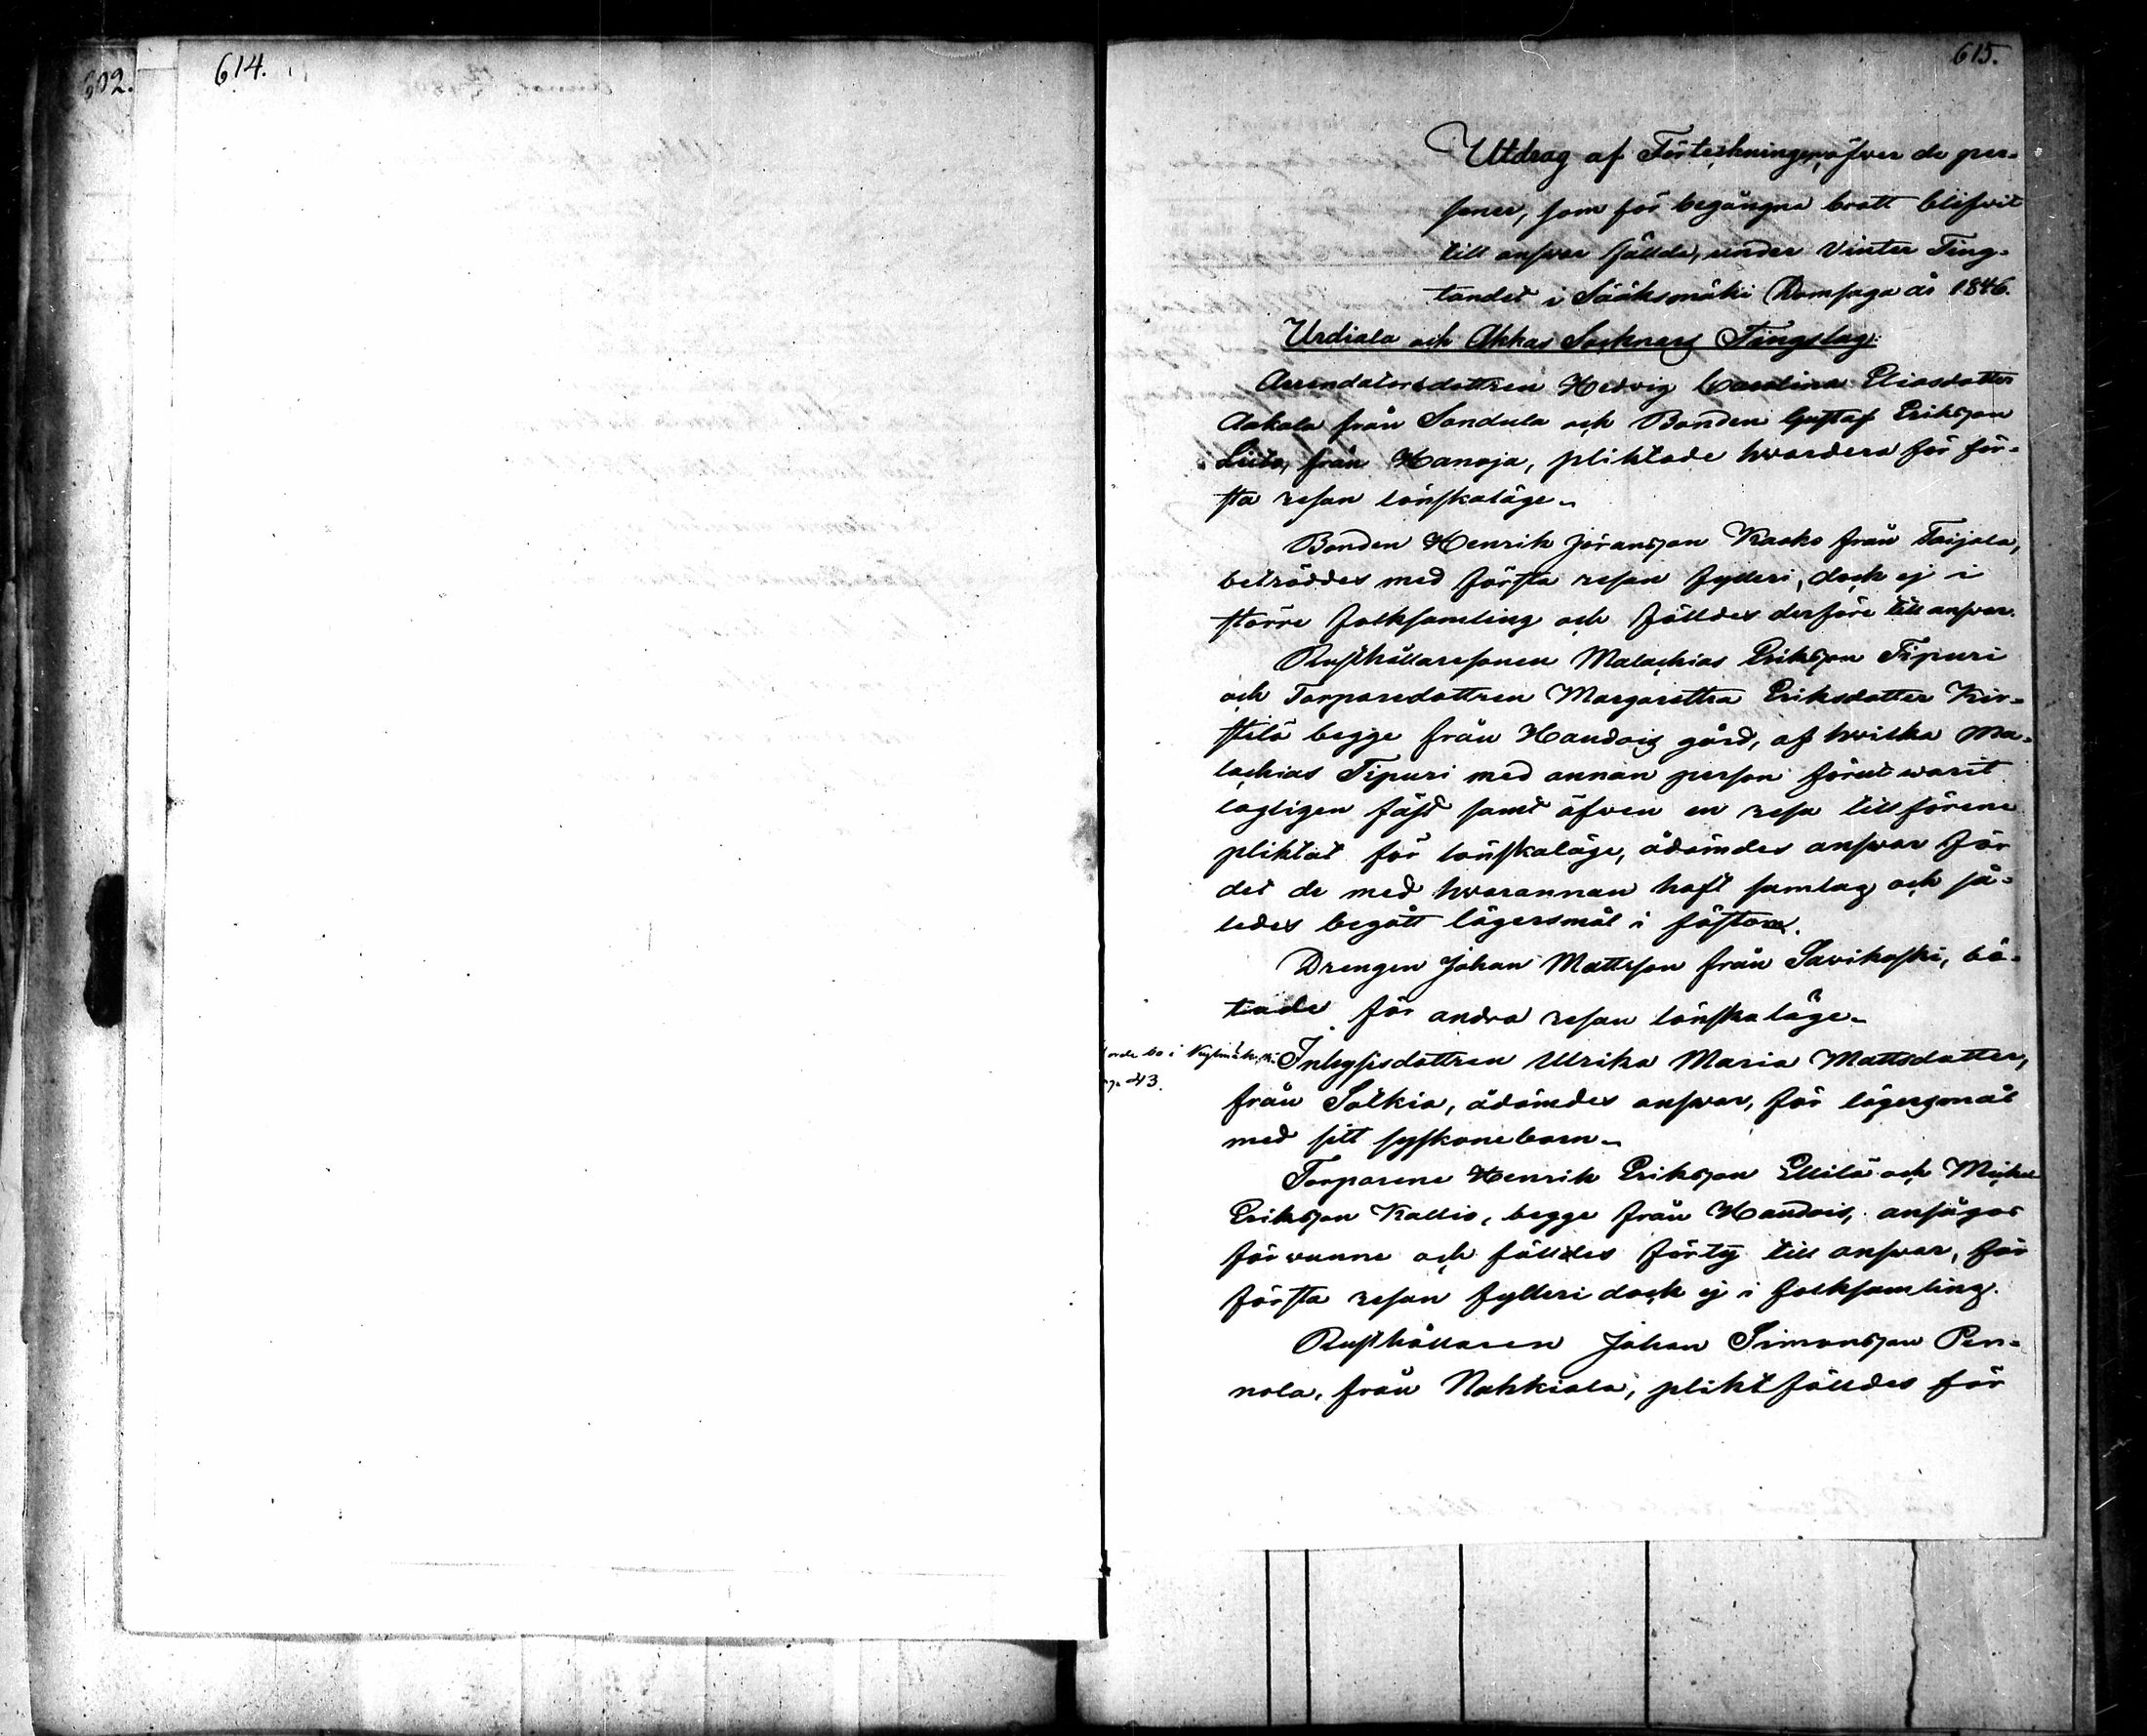 602.
614.
615.
Utdrag af Förteckningen öfver de per-
soner, som för begångna brott blifvit
till answar fällde, under Vinter Ting-
tandet i Sääksmäki Domsaga år 1846.
Urdiala och Akkas Socknars Tingslag:
Arrendatorsdottren Hedvig Carolina Eliasdotter
Aakala från Sondula och Bonden Gustaf Eriksson
Liito, från Kanoja, pliktade hwardera för för-
sta resan lönskaläge.
Bonden Henrik Jöransson Kaako från Taijala,
beträddes med första resan fylleri, dock ej i
större folksamling och fälldes derföre till answar.
Rusthållaresonen Malachias Eriksson Tipuri
och Torparedottren Margaretha Eriksdotter Kir-
stilä begge från Handois gård, af hwilka Ma-
lachias Tipuri med annan person förut warit
lagligen fäst samt äfven en resa tillförene
pliktat för lönskaläge, ådömdes answar för
det de med hvarannan haft samlag och så-
ledes begått lägersmål i fästom.
Drengen Johan Mattsson från Savikoski, bö-
tade för andra resan lönskaläge.
bo i
43.
Inhysisdottren Ulrika Maria Mattsdotter,
från Salkia, ådömdes answar, för lägersmål
med sitt syskonebarn.
Torparene Henrik Eriksson Ellilä och Mickel
Eriksson Kallio, begge från Handois, ansågos
förwunne och fälldes förty till answar, för
första resan fylleri dock ej i folksamling.
Rusthållaren Johan Simonsson Pen-
nola, från Nahkiala, pliktfälldes för